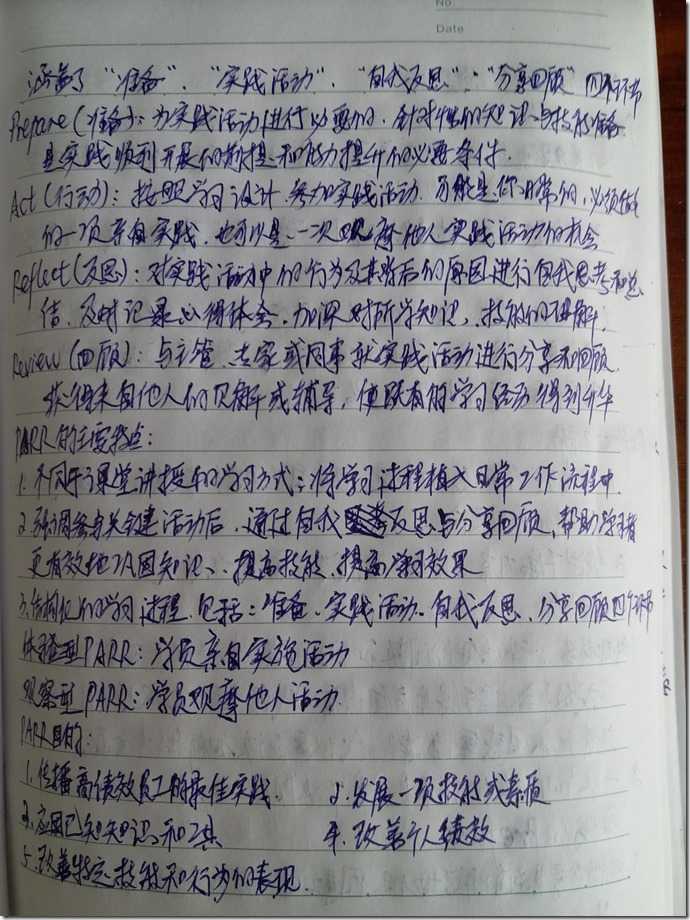 No
Date
涵盖了“准备”、“实践活动”、“自我反思”、“分享回顾”四个环节
Prepare(准备):为实践活动进行必要的、针对性的知识与技能准备
是实践顺利开展的前提和能力提升的必要条件.
Act(行动):按照学习设计、参加实践活动.可能是你日常的,必须做的
的一项亲自实践,也可以是一次观摩他人实践活动的机会
Reflect(反思):对实践活动中的行为及其背后的原因进行自我思考和总
结、及时记录心得体会、加深对所学知识、技能的理解.
Review(回顾):与主管、专家或同事就实践活动进行分享和回顾.
获得来自他人的见解或辅导,使既有的学习活动得到升华
PARR的主要特点:
1.不同于课堂讲授的学习方式:将学习过程植入日常工作流程中.
2.强调参与关键活动后,通过自我反思与分享回顾,帮助学习者
更有效地巩固知识、提高技能、提高学习效果
3.结构化的学习进程,包括:准备、实践活动、自我反思、分享回顾四个环节
体验型PARR:学员亲自实施活动
观察型PARR:学员观摩他人活动.
PARR目的:
1.传播高绩效员工的最佳实践. 2.发展一项技能或素质
3.应用已知知识和工具 4.改善个人绩效
5.改善特定技能和行为的表现.